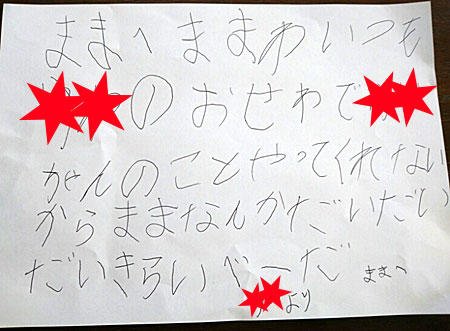 ままへ ままわいつも
のおせわで
がんのことやってくれない
からままなんかだいだい
だいきらいべーだ
ままへ
より